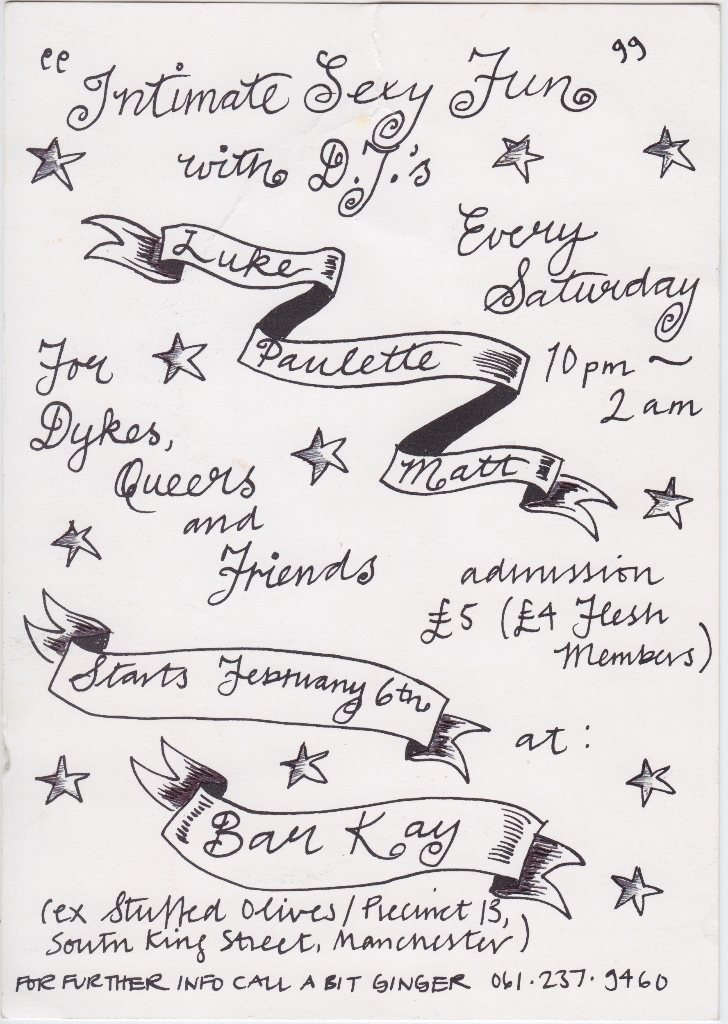 "Intimate Sexy Fun"
with D.J.'s
Luke
Paulette
Matt
Every
Saturday
10pm ~
2am
For
Dykes,
Queers
and
Friends
admission
£5 (£4 Flesh
Members)
Starts February 6th
at:
Bar Kay
(ex Stuffed Olives/Precinct 13,
South King Street, Manchester)
FOR FURTHER INFO CALL A BIT GINGER 061.237.9460